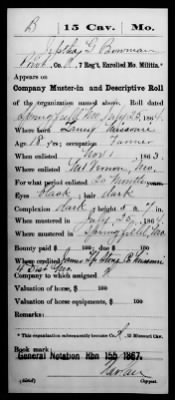 B 15 Cav. Mo.
G. Bowman
Co. 7 Reg't, Enrolled Mo. Militia.*
Appears on
Company Muster-in and Descriptive Roll
of the organization named above. Roll dated
Springfield Mo July 22, 1864.
Where born Missouri
Age 18 y'rs; occupation Farmer
When enlisted Nov 1, 1863.
Where enlisted Mt Vernon, Mo.
For what period enlisted 20 months
Eyes Black; hair dark
Complexion Dark; height 5 ft. 7 in.
When mustered in July 22, 1864
Where mustered in Springfield, Mo
Bounty paid $ 100; due $ 100
Where credited
4 Dist Mo
Company to which assigned
Valuation of horse, $ 100
Valuation of horse equipments, $ 100
Remarks:
* This organization subsequently became Co. 15 Missouri Cav.
Book mark:
General Notation Rbn 155 1887.
(361d) Copyist.